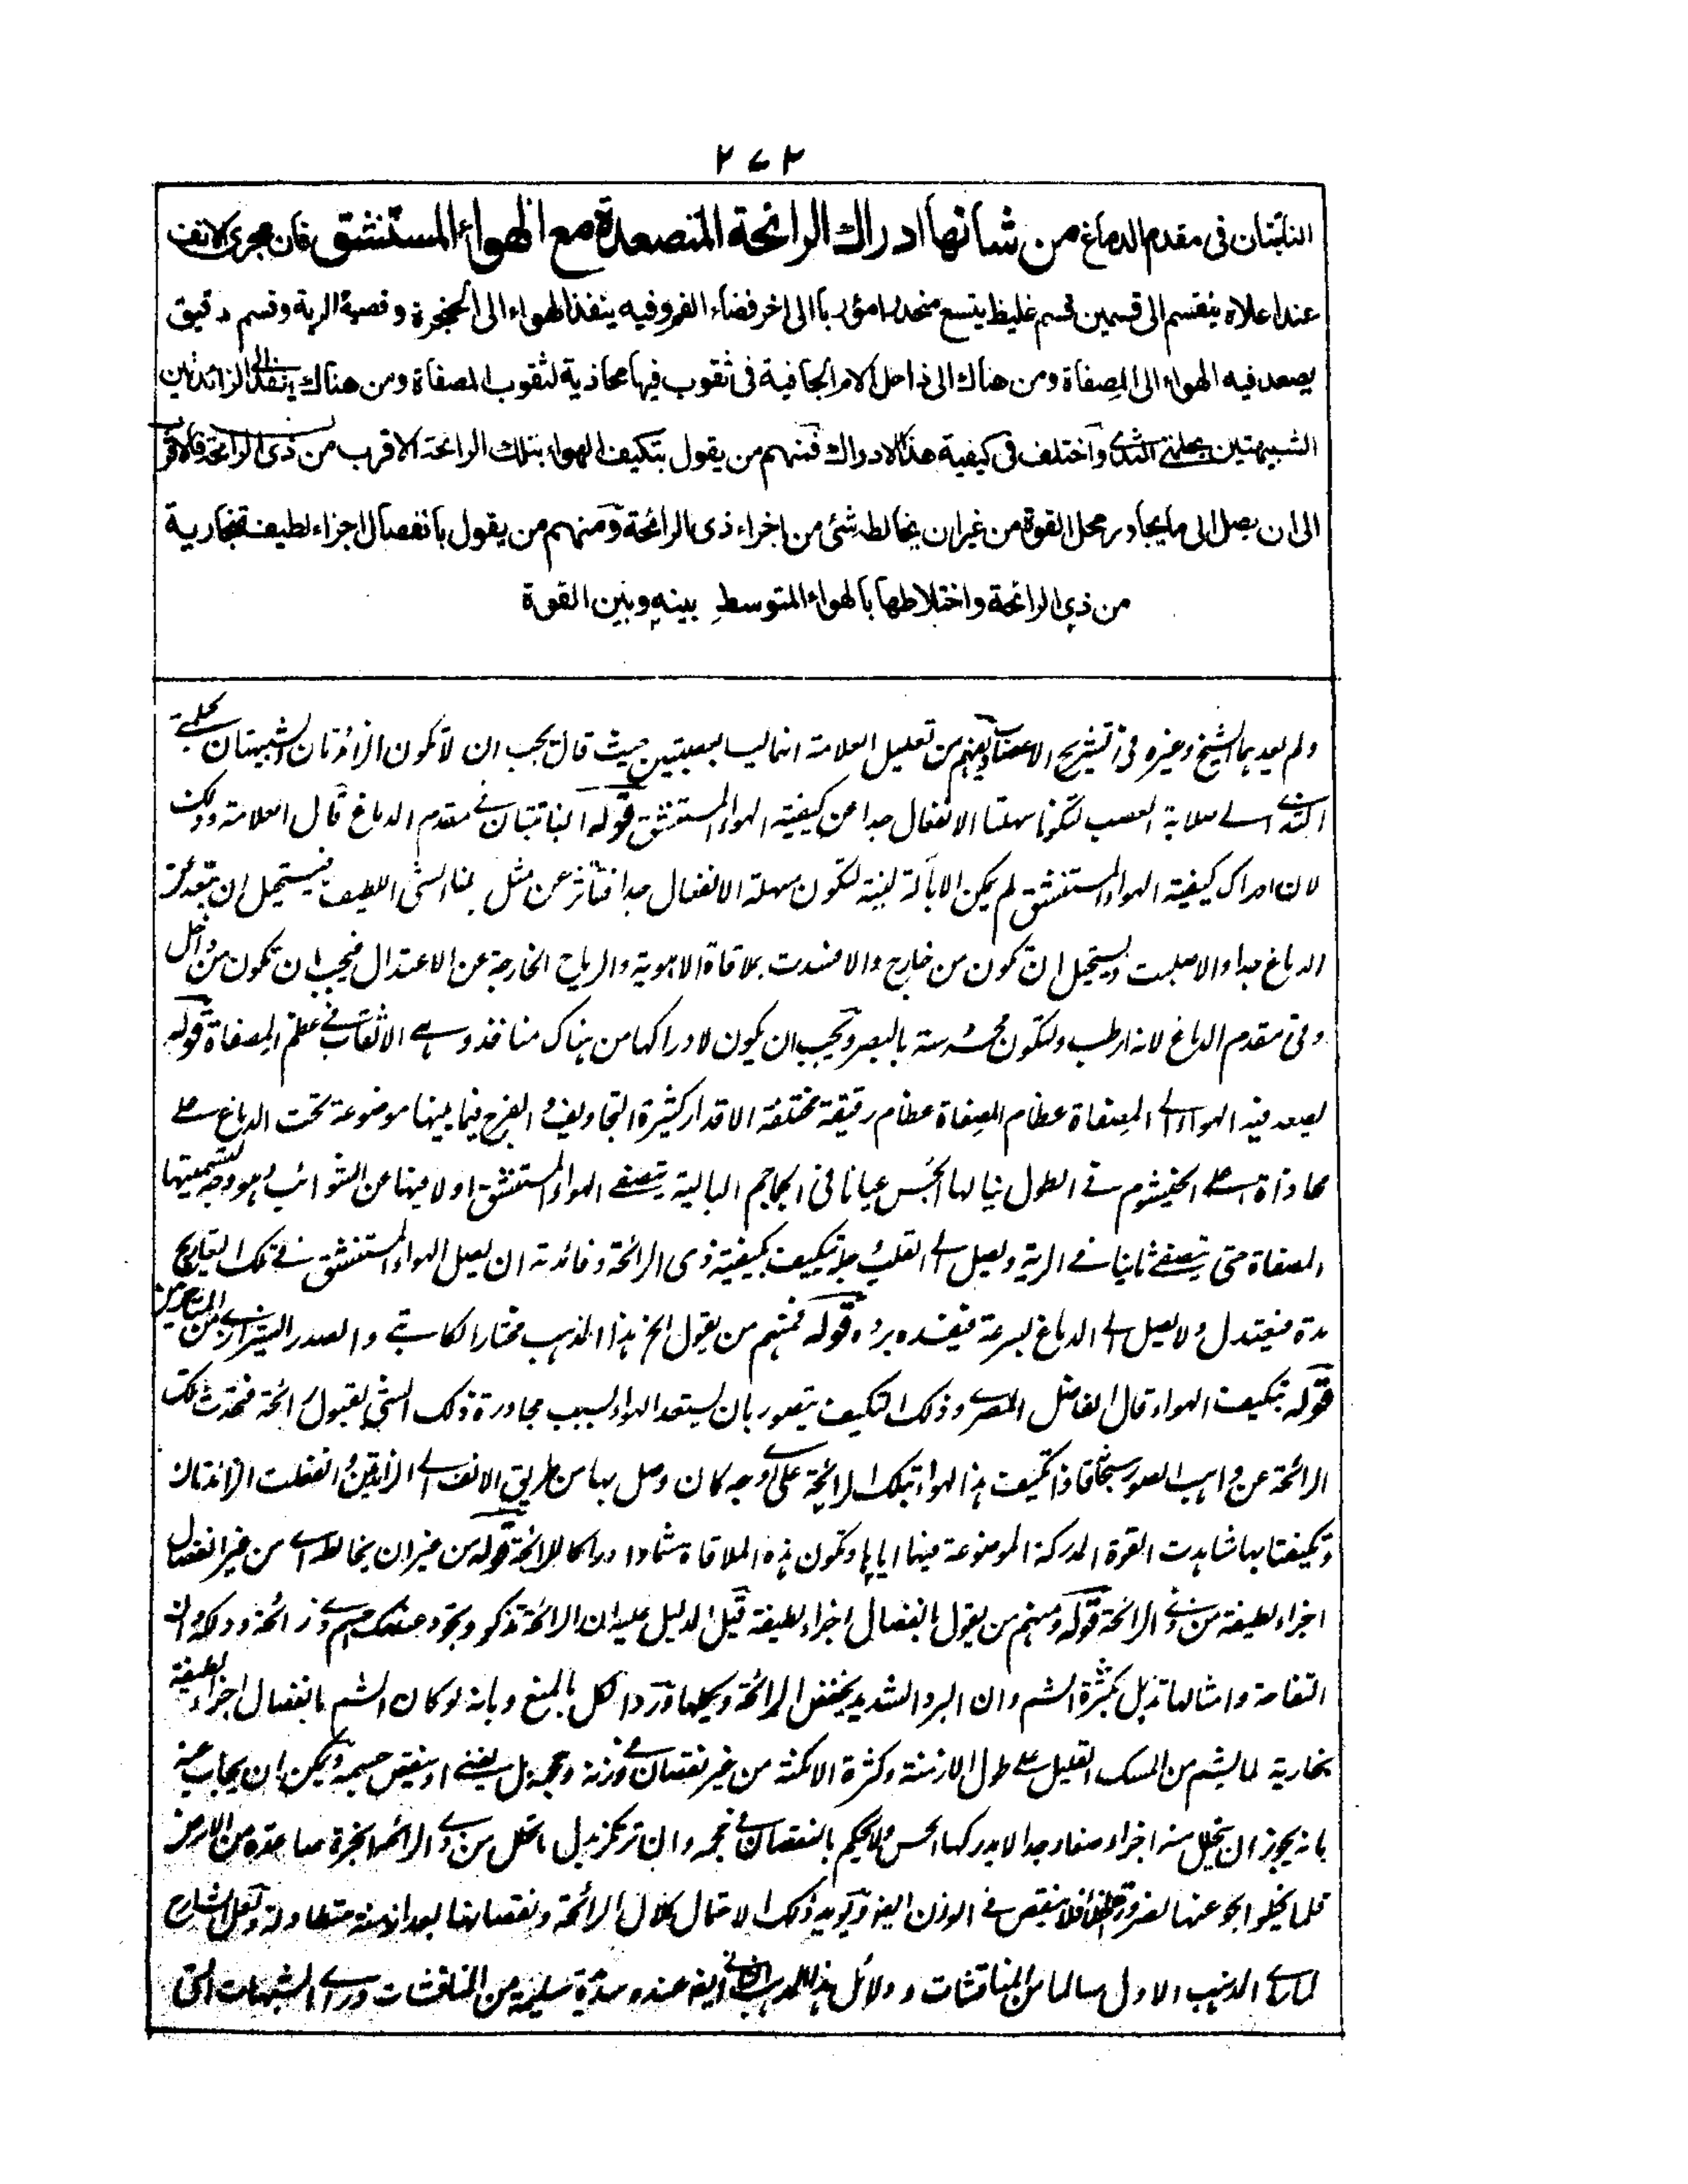 ٢٧٢
النابتتان فى مقدم الدماغ من شانها ادراك الرائحة المتصعدة مع الهواء المستنشق فان مجرى الانف
عند اعلاه ينقسم الى قسمين قسم غليظ يتسع منحدرا مؤربا الى اخر فضاء الفم وفيه ينفذ الهواء الى الحنجرة وقصبة الرية وقسم دقيق
يصعد فيه الهواء الى المصفاة ومن هناك الى داخل الام الجافية فى ثقوب فيها محاذية لثقوب المصفاة ومن هناك ينفذ الى الزائدتين
الشبيهتين بحلمتى الثدى واختلف فى كيفية هذا الادراك فمنهم من يقول بتكيف الهواء بتلك الرائحة الاقرب من ذى الرائحة فالاقرب
الى ان يصل الى ما يجاور محل القوة من غير ان يخالطه شئ من اجزاء ذى الرائحة ومنهم من يقول بانفصال اجزاء لطيفة بخارية
من ذى الرائحة واختلاطها بالهواء المتوسط بينه وبين القوة
ولم يعدهما الشيخ وغيره فى تشريح الاعصاب ويفهم من تعليل العلامة انها ليسا بعصبتين حيث قال يجب ان لا تكون الزائدتان الشبيهتان بحلمتى
الثدى فى صلابة العصب لتكونا سهلتا الانفعال جدا من كيفية الهواء المستنشق قوله النابتتان فى مقدم الدماغ قال العلامة وذلك
لان ادراك كيفية الهواء المستنشق لم يكن الا بآلة لينة لتكون سهلة الانفعال جدا فتتأثر عن مثل هذا الشئ اللطيف فيستحيل ان تبعد عن
الدماغ جدا والا صلبت ويستحيل ان تكون من خارج والا فسدت بملاقاة الاهوية والرياح الخارجة عن الاعتدال فيجب ان تكون من داخل
وفى مقدم الدماغ لانه ارطب ولتكون محروسة بالبصر ويجب ان يكون لادراكها من هناك منافذ وهى الاثقاب فى عظم المصفاة قوله
يصعد فيه الهواء الى المصفاة عظام المصفاة عظام رقيقة مختلفة الاقدار كثيرة التجاويف والفرج فيما بينها موضوعة تحت الدماغ على
محاذاة اعلى الخيشوم فى الطول ينالها الحس عيانا فى الجماجم البالية يتصفى الهواء المستنشق اولا فيها عن الشوائب وهو وجه تسميتها
بالمصفاة حتى يتصفى ثانيا فى الرية ويصل الى القلب بلا تكيف بكيفية ذى الرائحة وفائدته ان يصل الهواء المستنشق فى تلك التعاريج
مدة فيعتدل ولا يصل الى الدماغ بسرعة فيفسده برده قوله فمنهم من يقول الخ هذا المذهب مختار الكاتبى والصدر الشيرازى من المتاخرين
قوله بتكيف الهواء قال الفاضل المصرى وذلك التكيف يتصور بان يستعد الهواء بسبب مجاورة ذلك الشئ لقبول رائحة فتحدث تلك
الرائحة عن واهب الصور سبحانه فاذا تكيفت هذا الهواء بتلك الرائحة على وجه كان وصل بها من طريق الانف الى الزائدتين وانفعلت الزائدتان
وتكيفتا بها شاهدت القوة المدركة الموضوعة فيها اياها وتكون هذه الملاقاة شما وادراكا للرائحة قوله من غير ان يخالطه اى من غير انفصال
اجزاء لطيفة من ذى الرائحة قوله ومنهم من يقول بانفصال اجزاء لطيفة قيل الدليل عليه ان الرائحة تذكو
التفاحة وامثالها تذبل بكثرة الشم وان البرد الشديد يخفض الرائحة ويحلها ورد الكل بالمنع وبانه لو كان الشم بانفصال اجزاء لطيفة
بخارية لما يشم من المسك القليل على طول الازمنة وكثرة الامكنة من غير نقصان فى وزنه وحجمه بل يفنى او ينقص جسمه ويمكن ان يجاب عنه
بانه يجوز ان يتحلل منه اجزاء صغار جدا لا يدركها الحس ولا يحكم بالنقصان فى حجمه وان تركز بدل ما تحلل من ذى الرائحة ابخرة متصاعدة من الارض
قلما يخلو الجو عنها فلا ينقص فى الوزن ايضا ويؤيد ذلك الاحتمال كلال الرائحة ونقصانها بعد ازمنة متطاولة ولعل الشارح
لما راى المذهب الاول سالما من المناقشات ودلائل هذا المذهب الثانى ايضا عنده سليمة من المناقشات وراى الشبهات التى